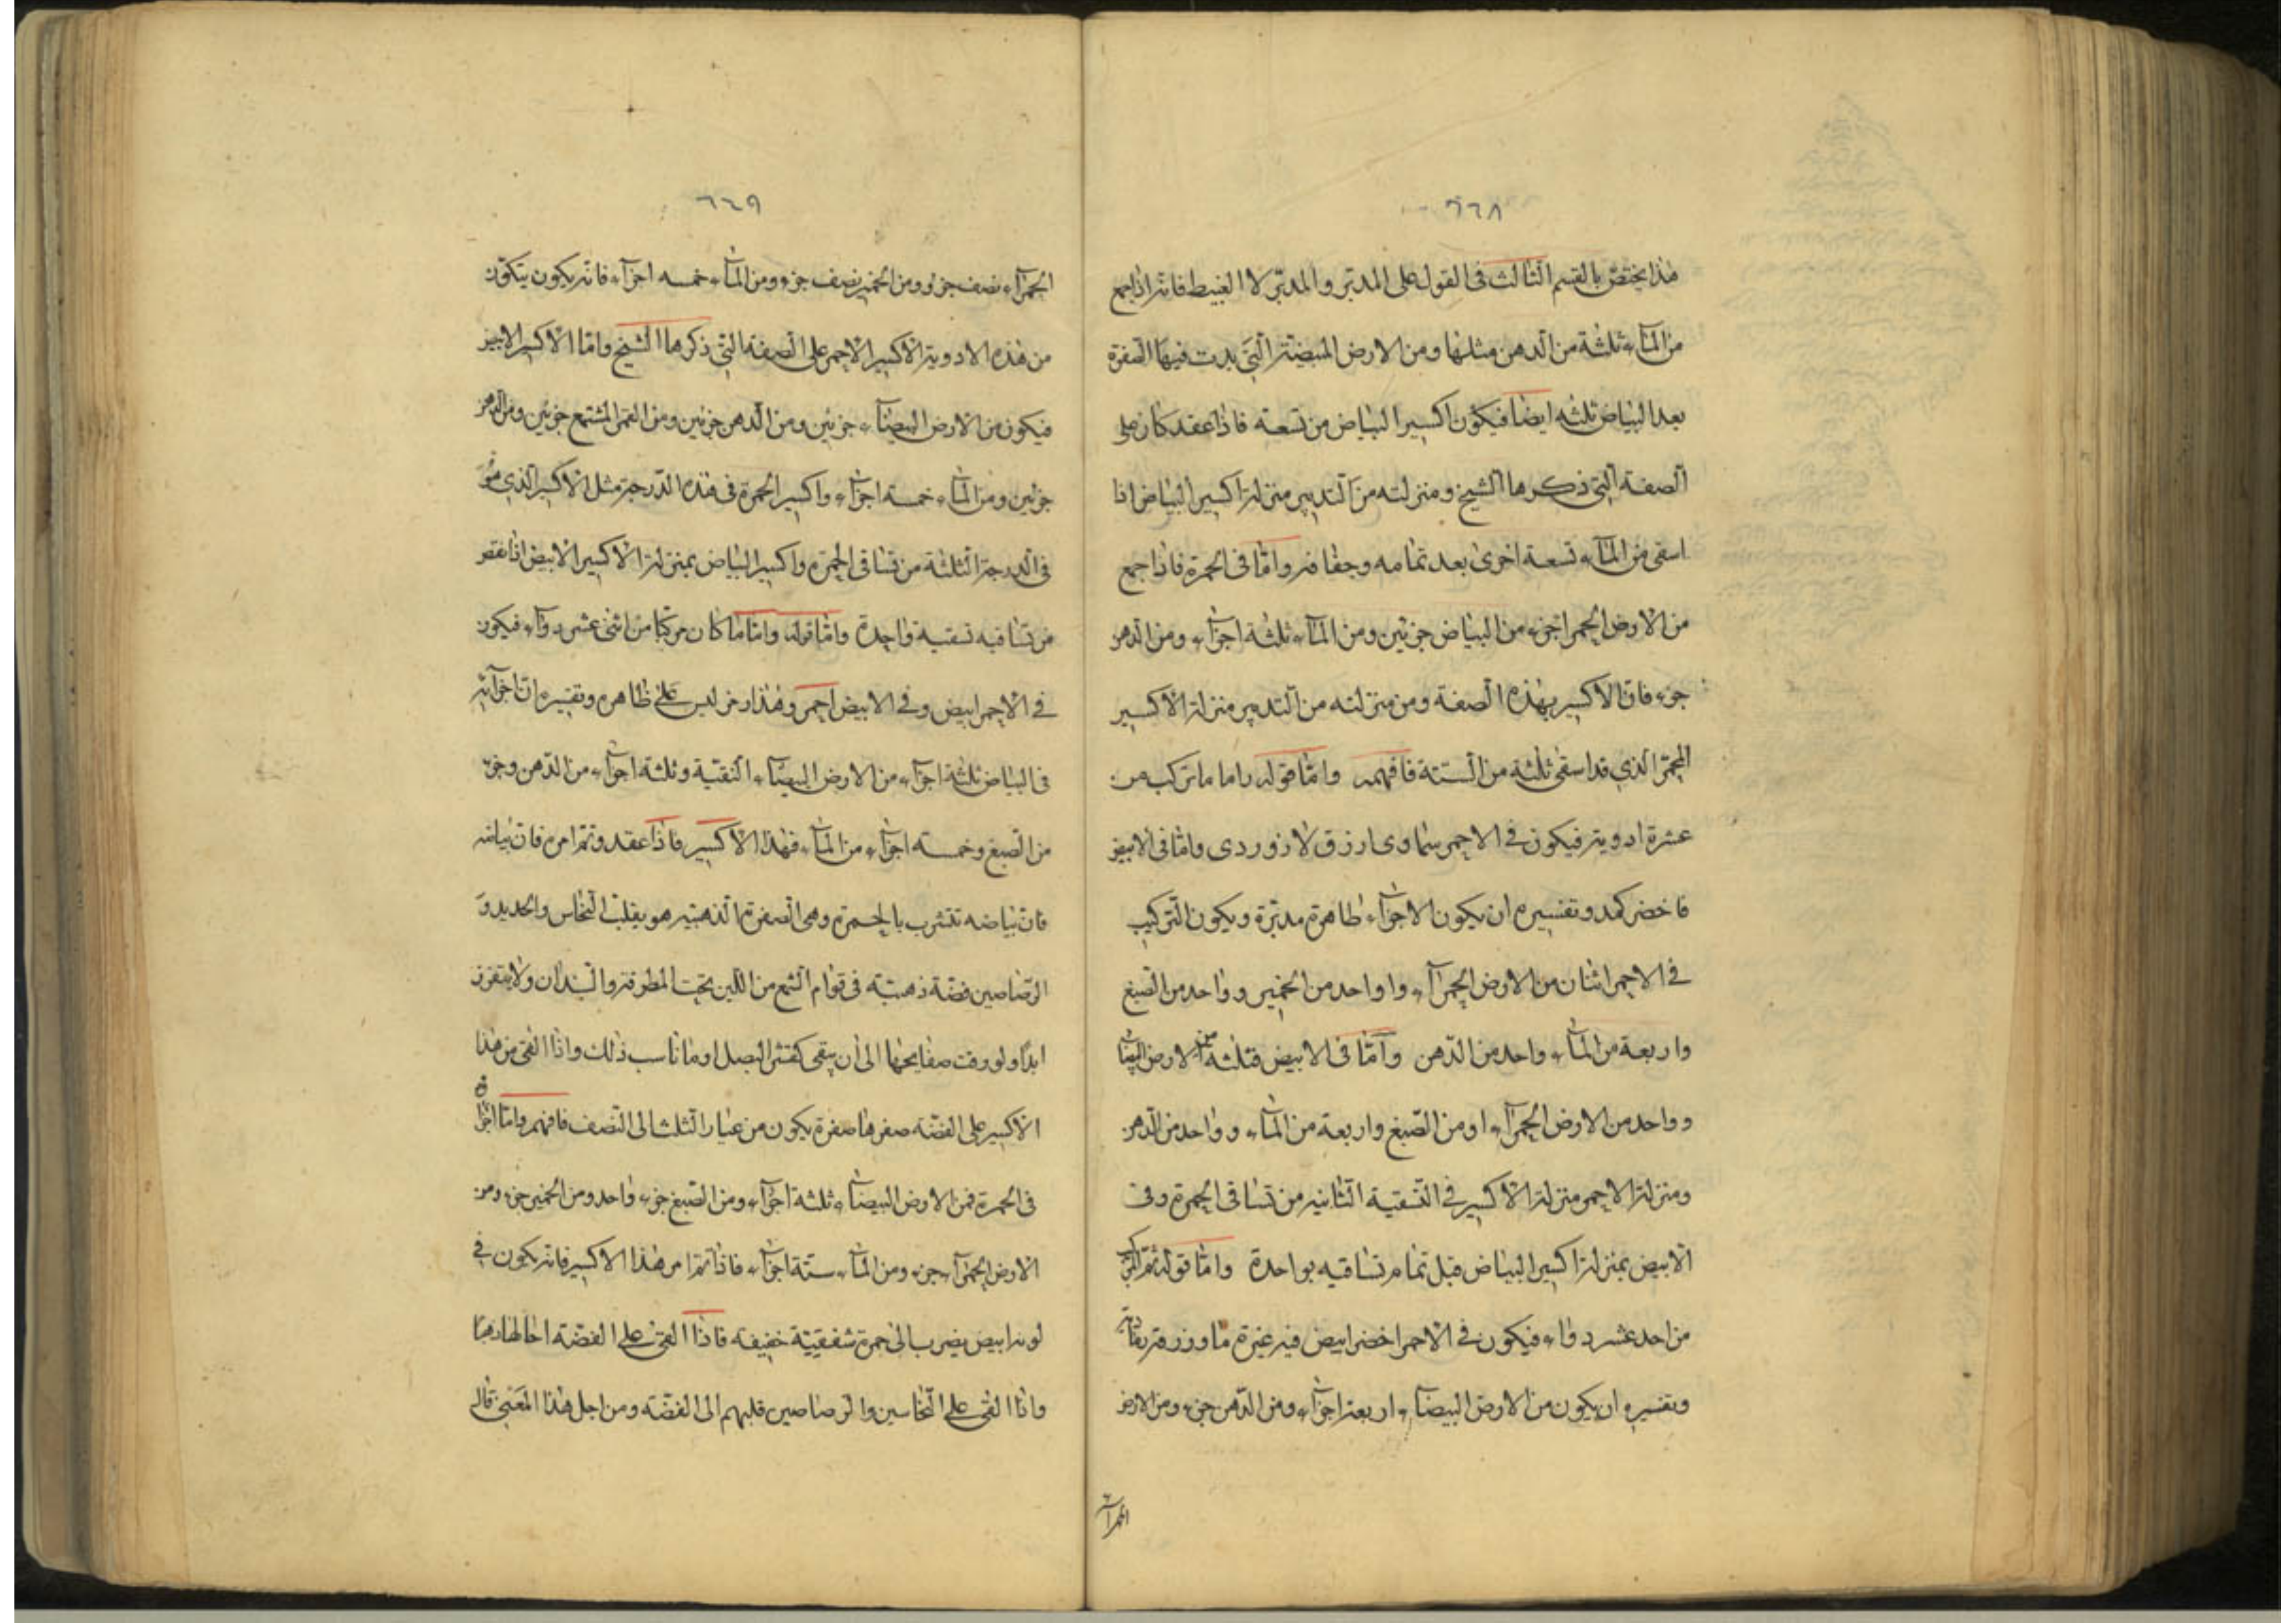 ٦٦٨
هذا يختص بالقسم الثالث فى القول على المدبَّر والمدبِّر لا الغبيط فانه اذا جمع
من المآء ثلثة من الدهن مثلها ومن الارض المبيضة التى بدت فيها الصفرة
بعد البياض ثلثه ايضا فيكون اكسير البياض من تسعة فاذا عقد كان على
الصفة التى ذكرها الشيخ ومنزلته من التدبير منزلة اكسير البياض اذا
اسقى من المآء تسعة اخرى بعد تمامه وجفافه واما فى الحمرة فاذا جمع
من الارض الحمرا جزء من البياض جزئين ومن المآء ثلثة اجزآء ومن الدهن
جزء فان الاكسير بهذه الصفة ومن منزلته من التدبير منزلة الاكسير
المحمر الذي قد اسقى ثلثة من الستة فافهمه واما قوله واما ما تركب من
عشرة ادوية فيكون في الاحمر سماوى ازرق لازوردى واما فى الابيض
فاخضر كمد وتفسيره ان يكون الاجزآء طاهرة مدبرة ويكون التركيب
في الاحمر اثنان من الارض الحمرآء واواحد من الخمير وواحد من الصبغ
واربعة من المآء واحد من الدهن وآمّا فى الابيض فثلثة من الارض البيضآء
وواحد من الارض الحمرآء او من الصبغ واربعة من المآء وواحد من الدهن
ومنزلة الاحمر منزلة الاكسير في التسقية الثانيه من تساقى الحمرة وفى
الابيض بمنزلة اكسير البياض قبل تمام تساقيه بواحدة واما قوله ثم المركب
من احد عشر دواء فيكون في الاحمر اخضر ابيض فيه غبرة ما وزرقة
وتفسيره ان يكون من الارض البيضآء اربعة اجزآء ومن الدهن جزء ومن الارض
الحمرآء
٦٦٩
الحمرآء نصف جزء ومن الخمير نصف جزء ومن المآء خمسه اجزآء فانه يكون يتكون
من هذه الادوية الاكسير الاحمر على الصفة التى ذكرها الشيخ واما الاكسير الابيض
فيكون من الارض البيضآء جزئين ومن الدهن جزئين ومن القمر المشمع جزئين ومن الدهن
جزئين ومن المآء خمسة اجزآء واكسير الحمرة فى هذه الدرجة مثل الاكسير الذي هو
فى الدرجة الثلثة من تساقى الحمرة واكسير البياض بمنزلة الاكسير الابيض اذا نقص
من تساقيه تسقية واحدة واما قوله واما ما كان مركبا من اثنى عشر دوآء فيكون
في الاحمر ابيض وفي الابيض احمر وهذا رمز ليس على ظاهره وتفسيره ان اجزآئه
فى البياض ثلثة اجزآء من الارض البيضآء النقية وثلثة اجزآء من الدهن وجزء
من الصبغ وخمسة اجزآء من المآء فهذا الاكسير فاذا عقد وتم امره فان بياضه
فان بياضه تتشرب بالحمرة وهى الصفرة الذهبيه هو يقلب النحاس والحديد و
الرصاصين فضة ذهبية فى قوام الشمع من اللين تحت المطرقة والسندان ولا يتفزر
ابدًا ولو رقت صفايحها الى ان يبقى كقشر البصل او ما ناسب ذلك واذا القى من هذا
الاكسير على الفضة صفرها صفرة يكون من عيار الثلث الى النصف فافهم واما اجزآؤه
فى الحمرة فمن الارض البيضآء ثلثة اجزآء ومن الصبغ جزء واحد ومن الخمير جزء ومن
الارض الحمرآء جزء ومن المآء ستة اجزآء فاذا تم امر هذا الاكسير فانه يكون في
لونه ابيض يضرب الى حمرة شفقيّة خفيفه فاذا القى على الفضة احالها ذهبا
واذا القى على النحاسين والرصاصين قلبهم الى الفضّة ومن اجل هذا المعنى قال